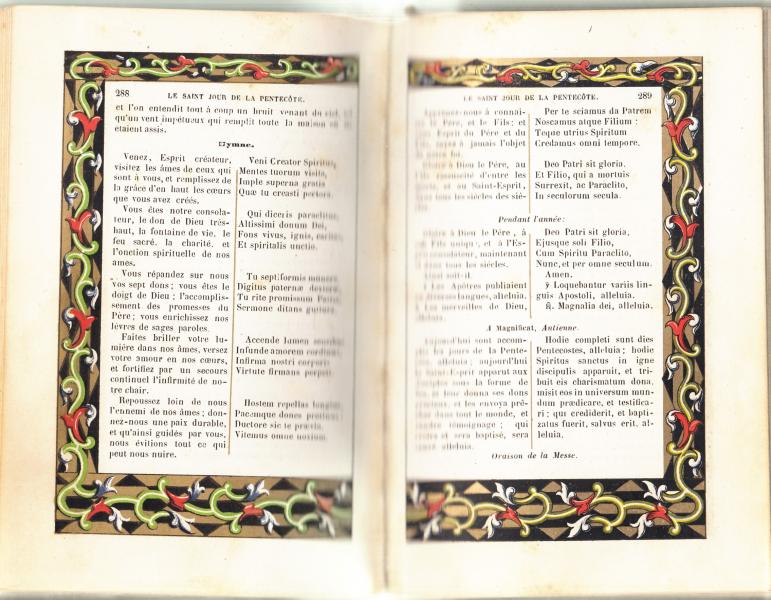 288
LE SAINT JOUR DE LA PENTECÔTE.
et l'on entendit tout à coup un bruit venant du ciel,
qu'un vent impétueux qui remplit toute la maison
étaient assis.
Hymne.
Venez, Esprit créateur,
visitez les âmes de ceux qui
sont à vous, et remplissez de
la grâce d'en haut les cœurs
que vous avez créés.
Vous êtes notre consola-
teur, le don de Dieu très-
haut, la fontaine de vie, le
feu sacré, la charité, et
l'onction spirituelle de nos
ames.
Vous répandez sur nous
vos sept dons; vous êtes le
doigt de Dieu; l'accomplis-
sement des promesses du
Père; vous enrichissez nos
lèvres de sages paroles.
Faites briller votre lu-
mière dans nos âmes, versez
votre amour en nos cœurs,
et fortifiez par un secours
continuel l'infirmité de no-
tre chair.
Repoussez loin de nous
l'ennemi de nos âmes; don-
nez-nous une paix durable,
et qu'ainsi guidés par vous,
nous évitions tout ce qui
peut nous nuire.
Veni Creator Spiritus,
Mentes tuorum visita,
Imple superna gratia
Quæ tu creasti pectora.
Qui diceris paraclitus,
Altissimi donum Dei,
Fons vivus, ignis, caritas,
Et spiritalis unctio.
Tu septiformis munere,
Digitus paternæ dexteræ,
Tu rite promissum Patris,
Sermone ditans guttura.
Accende lumen sensibus,
Infunde amorem cordibus,
Infirma nostri corporis
Virtute firmans perpeti.
Hostem repellas longius,
Pacemque dones protinus;
Ductore sic te prævio,
Vitemus omne noxium.
LE SAINT JOUR DE LA PENTECÔTE.
289
Apprenez-nous à connaî-
le Père, et le Fils; et
Esprit du Père et du
soyez à jamais l'objet
notre foi.
Gloire à Dieu le Père, au
Fils ressuscité d'entre les
et au Saint-Esprit,
tous les siècles des siè-
Per te sciamus da Patrem
Noscamus atque Filium:
Teque utrius Spiritum
Credamus omni tempore.
Deo Patri sit gloria,
Et Filio, qui a mortuis
Surrexit, ac Paraclito,
In sæculorum secula.
Pendant l'année:
Gloire à Dieu le Père, à
Fils unique, et à l'Es-
consolateur, maintenant
dans tous les siècles.
Ainsi soit-il.
Les Apôtres publiaient
diverses langues, alleluia.
Les merveilles de Dieu,
alleluia.
Deo Patri sit gloria,
Ejusque soli Filio,
Cum Spiritu Paraclito,
Nunc, et per omne seculum.
Amen.
℣ Loquebantur variis lin-
guis Apostoli, alleluia.
℟. Magnalia dei, alleluia.
A Magnificat, Antienne.
Aujourd'hui sont accom-
les jours de la Pente-
alleluia; aujourd'hui
Saint-Esprit apparut aux
disciples sous la forme de
et leur donna ses dons
et les envoya prê-
dans tout le monde, et
rendre témoignage; qui
et sera baptisé, sera
alleluia.
Hodie completi sunt dies
Pentecostes, alleluia; hodie
Spiritus sanctus in igne
discipulis apparuit, et tri-
buit eis charismatum dona,
misit eos in universum mun-
dum prædicare, et testifica-
ri: qui crediderit, et bapti-
zatus fuerit, salvus erit, al-
leluia.
Oraison de la Messe.